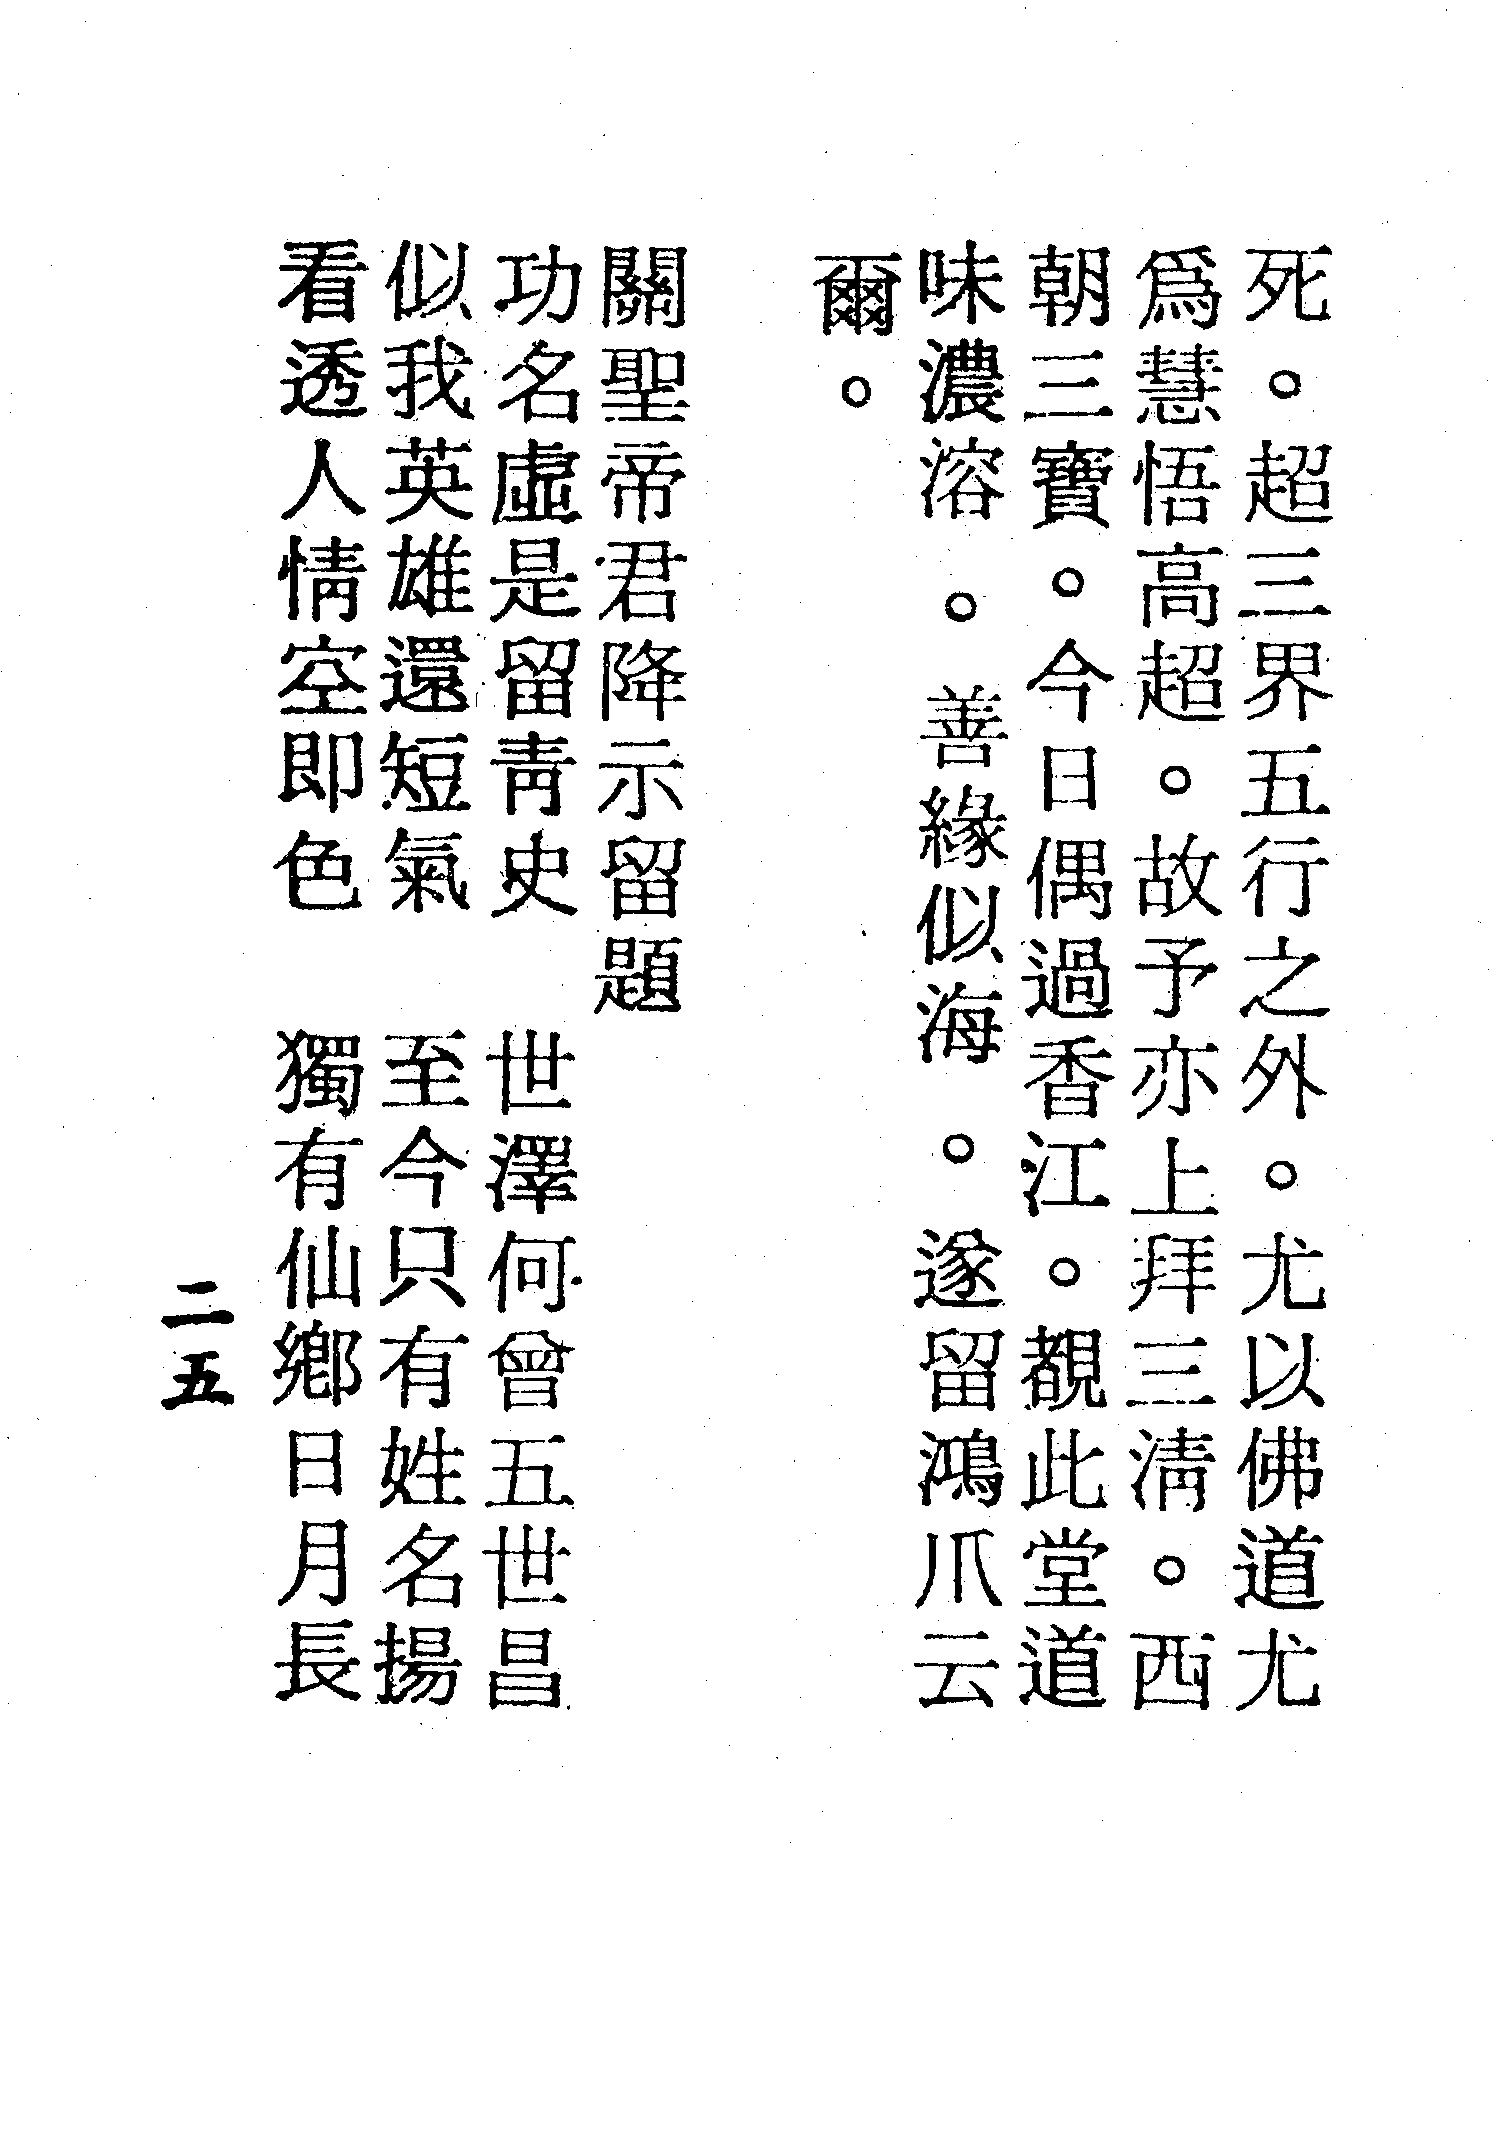 死。超三界五行之外。尤以佛道尤
爲慧悟高超。故予亦上拜三淸。西
朝三寶。今日偶過香江。覩此堂道
味濃溶。善緣似海。遂留鴻爪云
爾。
關聖帝君降示留題
功名虛是留靑史　世澤何曾五世昌
似我英雄還短氣　至今只有姓名揚
看透人情空即色　獨有仙鄕日月長
二五